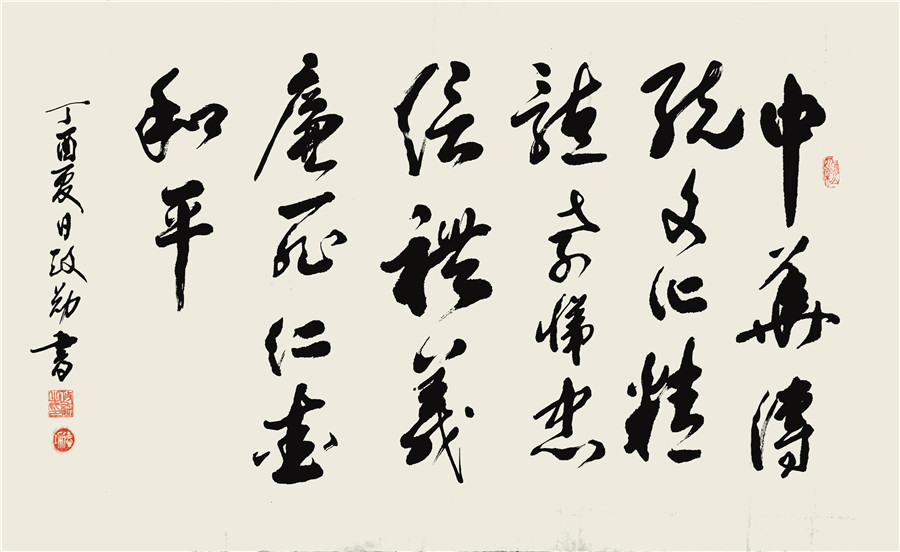 中華傳
統文化精
髓孝悌忠
信禮義
廉恥仁愛
和平
丁酉夏日政勋書